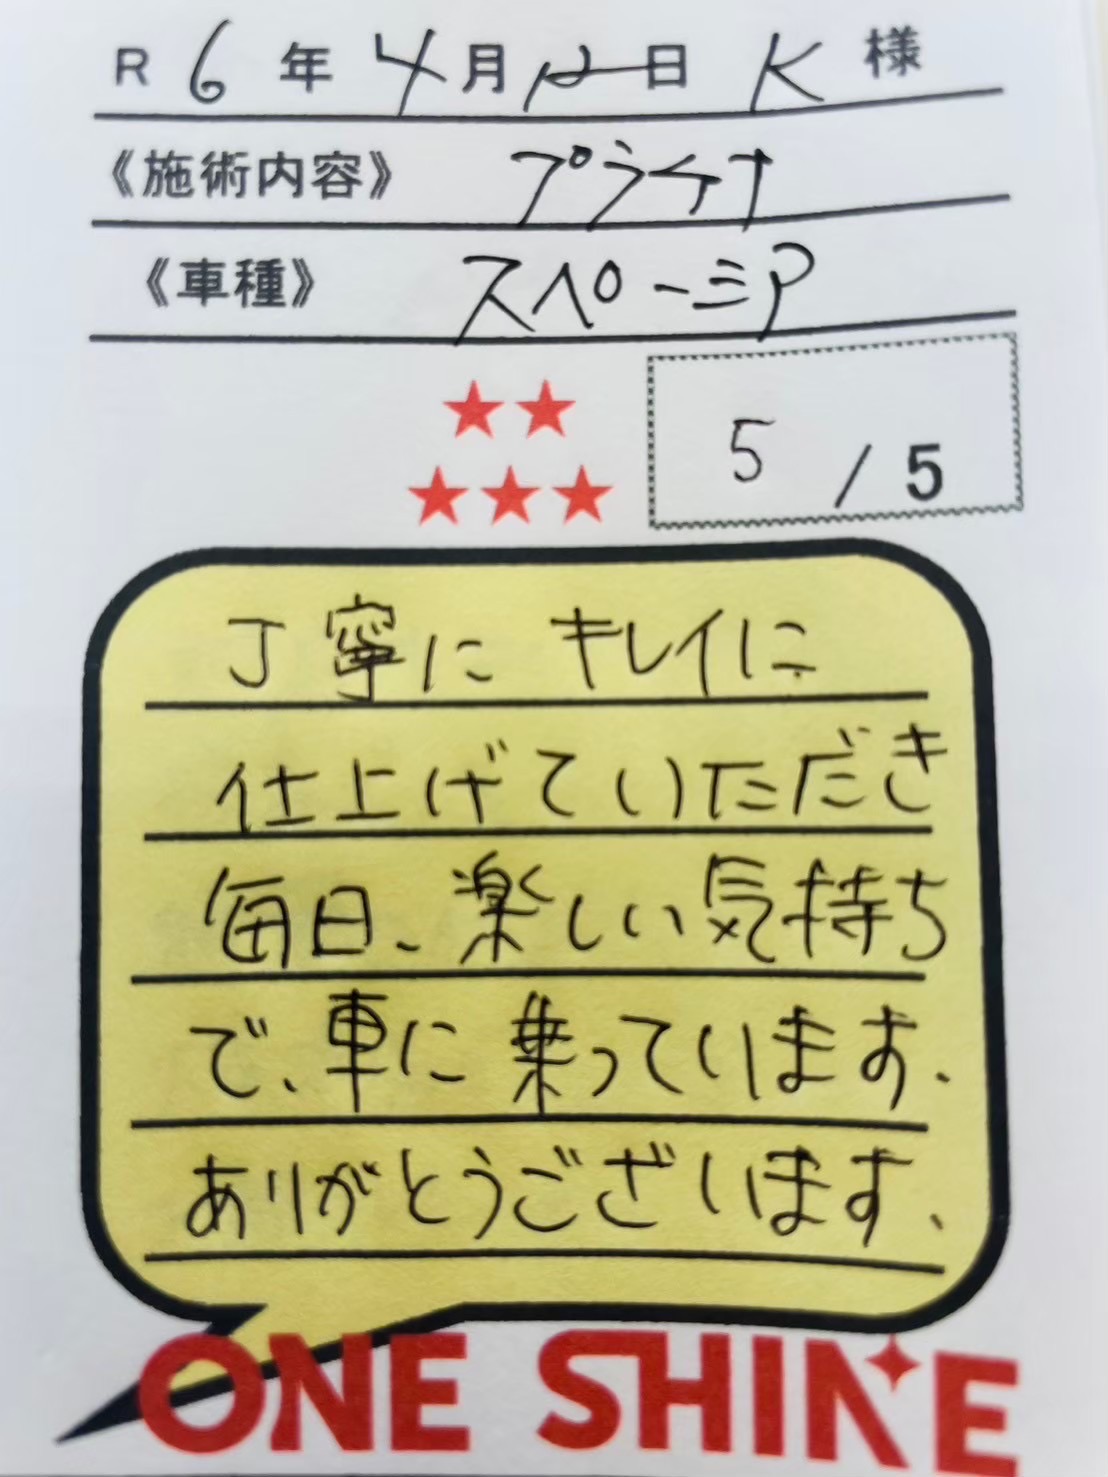 R 6 年 4 月 12 日 K 様
《施術内容》 プラチナ
《車種》 スペーシア
5 / 5
丁寧に キレイに
仕上げていただき
毎日、楽しい気持ち
で、車に乗っています.
ありがとうございます、
ONE SHINE